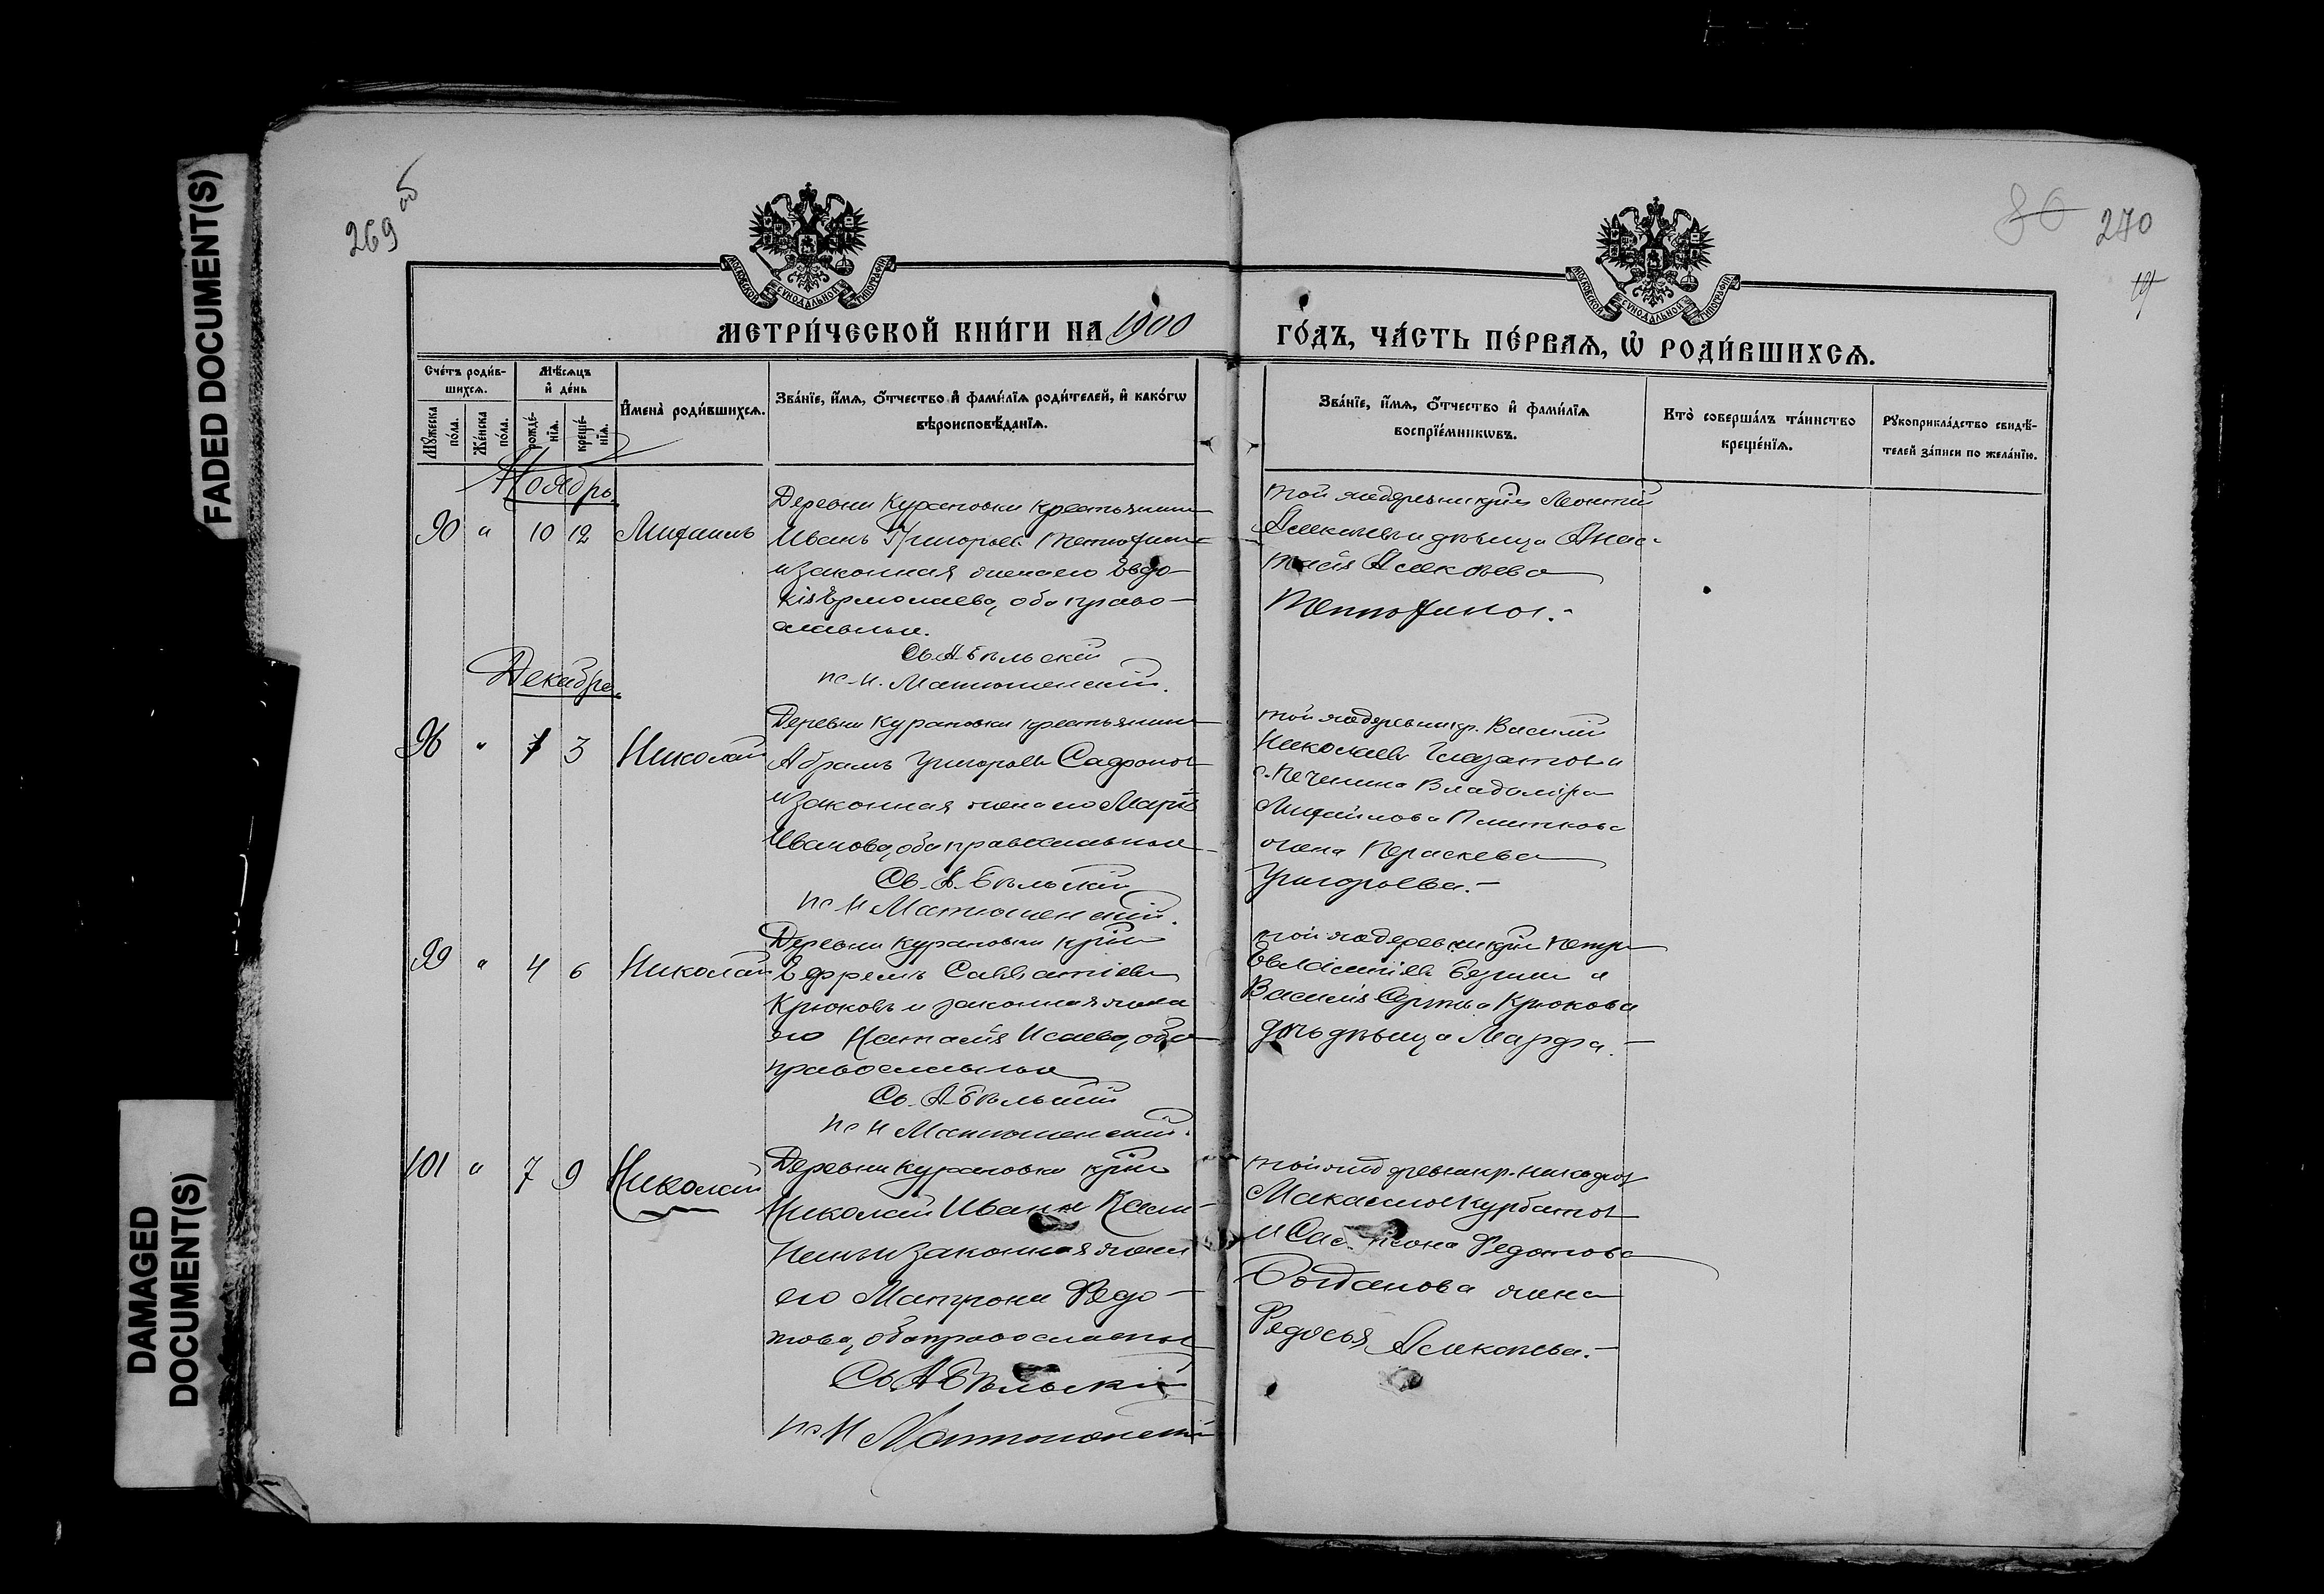 FADED DOCUMENT(S)
DAMAGED DOCUMENT(S)
269 об
80 270
МОСКОВСКОЙ СѴНОДАЛЬНОЙ ТИПОГРАФІИ
МОСКОВСКОЙ СѴНОДАЛЬНОЙ ТИПОГРАФІИ
МЕТРИ́ЧЕСКОЙ КНИ́ГИ НА 1900
ГО́ДЪ, ЧА́СТЬ ПЕ́РВАѦ, Ѡ҆ РОДИ́ВШИХСѦ.
Сче́тъ роди́в-
шихсѧ.
Мѣ́сѧцъ
и҆ де́нь
Мꙋ́жеска по́ла.
Же́нска по́ла.
рожде́-
нїѧ.
креще́-
нїѧ.
И҆мена̀ роди́вшихсѧ.
Зва́нїе, и҆́мѧ, ѻ҆́тчество и҆ фами́лїѧ роди́телей, и҆ како́гѡ
вѣроисповѣ́данїѧ.
Зва́нїе, и҆́мѧ, ѻ҆́тчество и҆ фами́лїѧ
воспрїе́мникѡвъ.
Кто̀ соверша́лъ та́инство
креще́нїѧ.
Рꙋкоприкла́дство свидѣ́-
телей за́писи по жела́нїю.
Ноябрь
90 " 10 12 Михаилъ
Деревни Курановки крестьянинъ
Иванъ Григорьев
и законная жена его Евдо-
кія Ермолаева, оба право-
славные.
Св. А. Бѣльскій
пс. Н. Матюшенскій.
той же деревни кр-нъ Леонтій
Алексѣевъ и дѣвица Анас-
тасія Алексѣева
Декабрь
96 " 1 3 Николай
Деревни Курановки крестьянинъ
Абрамъ Григорьев Сафронов
и законная жена его Марія
Иванова, оба православные
Св. А. Бѣльскій
пс Н Матюшенскій.
той же деревни кр. Василій
Николаевъ Глазатов и
с. Печинина Владиміра
Михайлова Плотникова
жена Параскева
Григорьева.-
99 " 4 6 Николай
Деревни Курановки кр-нъ
Ефремъ Савватіевъ
Крюковъ и законная жена
его Наталія Исаева, оба
православные
Св. А. Бѣльскій
пс Н Матюшенскій.
той же деревни кр-нъ Петръ
и
Василія Сергѣева Крюкова
дочь дѣвица Марфа.-
101 " 7 9 Николай
Деревни Курановки кр-нъ
Николай Иванов Кали-
нинъ и законная жена
его Матрона Федо-
това, оба православные
Св. А. Бѣльскій
пс Н Матюшенскій
той же деревни кр. Никифор
Курбатов
и Федотова
Богданова жена
Федосья Алексѣева.-